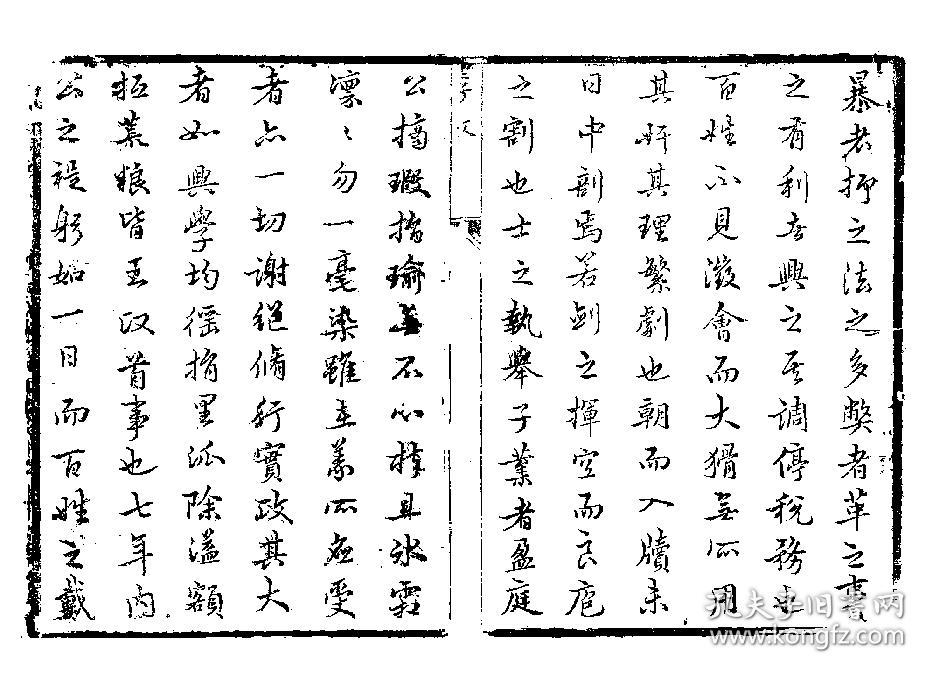 暴者抑之法之多弊者革之事
之有利者興之至調停稅務使
百姓不見徵會而大猾無所用
其奸其理繁劇也朝而入牘未
日中剖焉若劍之揮空而良庖
之割也士之執舉子業者盈庭
公摘瑕指瑜無不心
凜〻勿一毫染雖主羨所應受
者亦一切謝絕脩行實政其大
者如興學均徭捐里派除溢額
拓荒糧皆王政首事也七年內
公之視躬如一日而百姓之戴
孔夫子旧书网
www.kongfz.com